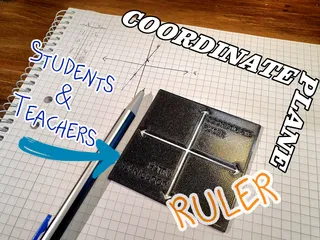 COORDINATE
PLANE
STUDENTS
&
TEACHERS
RULER